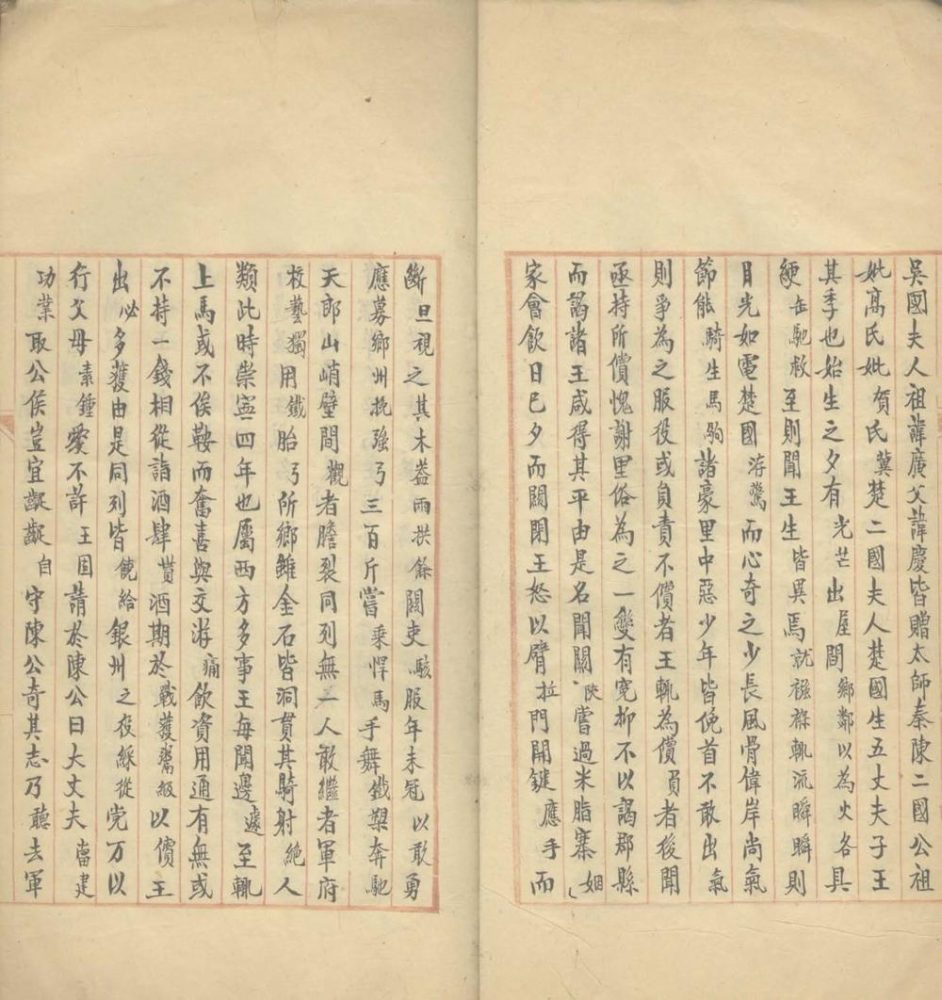 吳國夫人祖諱廣父諱慶皆贈太師秦陳二國公祖
妣高氏妣賀氏冀楚二國夫人楚國生五丈夫子王
其季也始生之夕有光芒出屋間鄉鄰以為火各具
綆缶馳救至則聞王生皆異焉就襁褓輒流瞬瞬則
目光如電楚國游驚而心奇之少長風骨偉岸尚氣
節能騎生馬駒諸豪里中惡少年皆俛首不敢出氣
則爭為之服役或負責不償者王輒為償負者後聞
亟持所償愧謝里俗為之一變有寃抑不以謁郡縣
而謁諸王咸得其平由是名聞關陝嘗過米脂寨姻
家會飲日已夕而關閉王怒以臂拉門關鍵應手而
斷旦視之其木葢兩拱餘關吏駭服年未冠以敢勇
應募鄉州挽强弓三百斤嘗乘悍馬手舞鐵槊奔馳
天郎山峭壁間觀者膽裂同列無一人敢繼者軍府
校藝獨用鐵胎弓所鄉雖金石皆洞貫其騎射絶人
類此時崇寧四年也屬西方多事王每聞邊遽至輒
上馬或不俟鞍而奮喜與交游痛飲資用通有無或
不持一錢相從詣酒肆貰酒期於戰獲鹵級以償王
出必多獲由是同列皆饒給銀州之役綵從党万以
行父母素鍾愛不許王固請於陳公曰大丈夫當建
功業取公侯豈宜齪齪自守陳公奇其志乃聽去軍